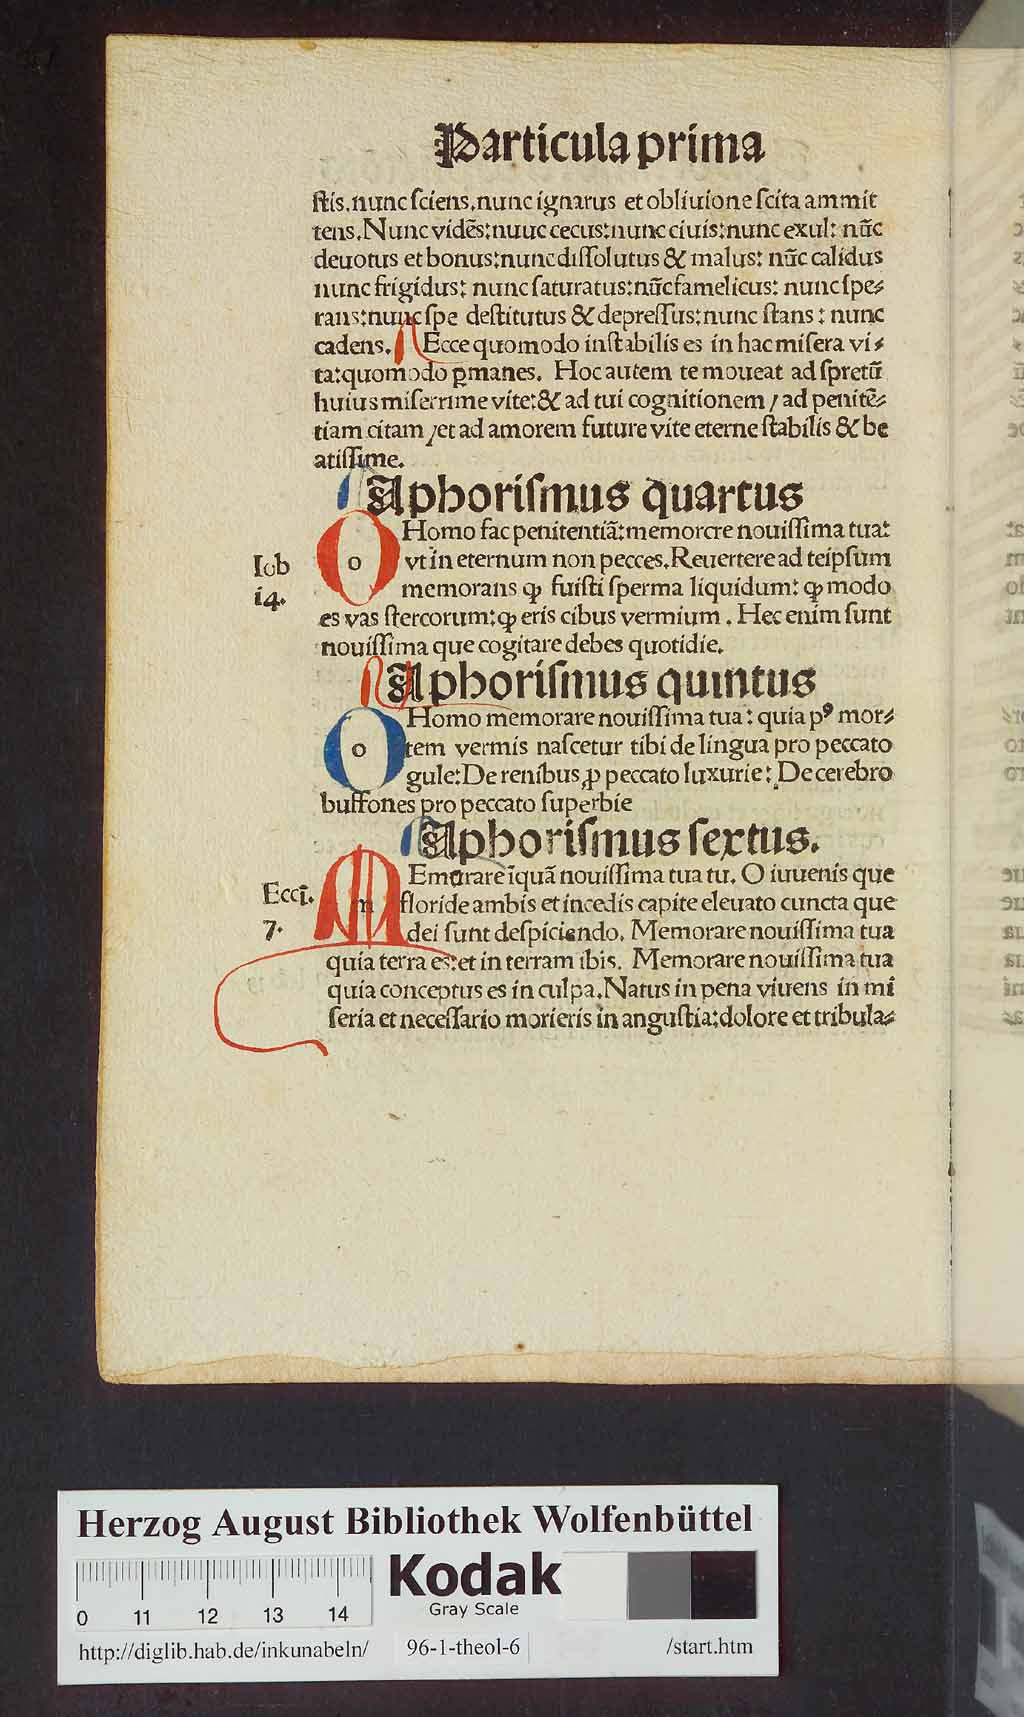 Particula prima
ſtis. nunc ſciens. nunc ignarus et obliuione ſcita ammit
tens. Nunc vidēs: nuuc cecus: nunc ciuis: nunc exul: nūc
deuotus et bonus: nunc diſſolutus & malus: nūc calidus
nunc frigidus: nunc ſaturatus: nūc famelicus: nunc ſpe⸗
rans: nunc ſpe deſtitutus & depreſſus: nunc ſtans : nunc
cadens. Ecce quomodo inſtabilis es in hac miſera vi⸗
ta: quomodo ꝑmanes. Hoc autem te moueat ad ſpretū
huius miſerrime vite: & ad tui cognitionem / ad penitē⸗
tiam citam / et ad amorem future vite eterne ſtabilis & be
atiſſime.
Aphoriſmus quartus
O Homo fac penitentiā: memorere nouiſſima tua:
Iob
vt in eternum non pecces. Reuertere ad teipſum
14.
memorans ꝙ fuiſti ſperma liquidum: ꝙ modo
es vas ſtercorum: ꝙ eris cibus vermium . Hec enim ſunt
nouiſſima que cogitare debes quotidie.
Aphoriſmus quintus
O Homo memorare nouiſſima tua: quia pꝰ mor⸗
tem vermis naſcetur tibi de lingua pro peccato
gule: De renibus ꝓ peccato luxurie: De cerebro
buffones pro peccato ſuperbie
Aphoriſmus ſextus.
MEmorare īquā nouiſſima tua tu. O iuuenis que
Eccī.
floride ambis et incedis capite eleuato cuncta que
7.
dei ſunt deſpiciendo. Memorare nouiſſima tua
quia terra es: et in terram ibis. Memorare nouiſſima tua
quia conceptus es in culpa. Natus in pena viuens in mi
ſeria et neceſſario morieris in anguſtia: dolore et tribula⸗
Herzog August Bibliothek Wolfenbüttel
Kodak
Gray Scale
0 11 12 13 14
http://diglib.hab.de/inkunabeln/ 96-1-theol-6 /start.htm